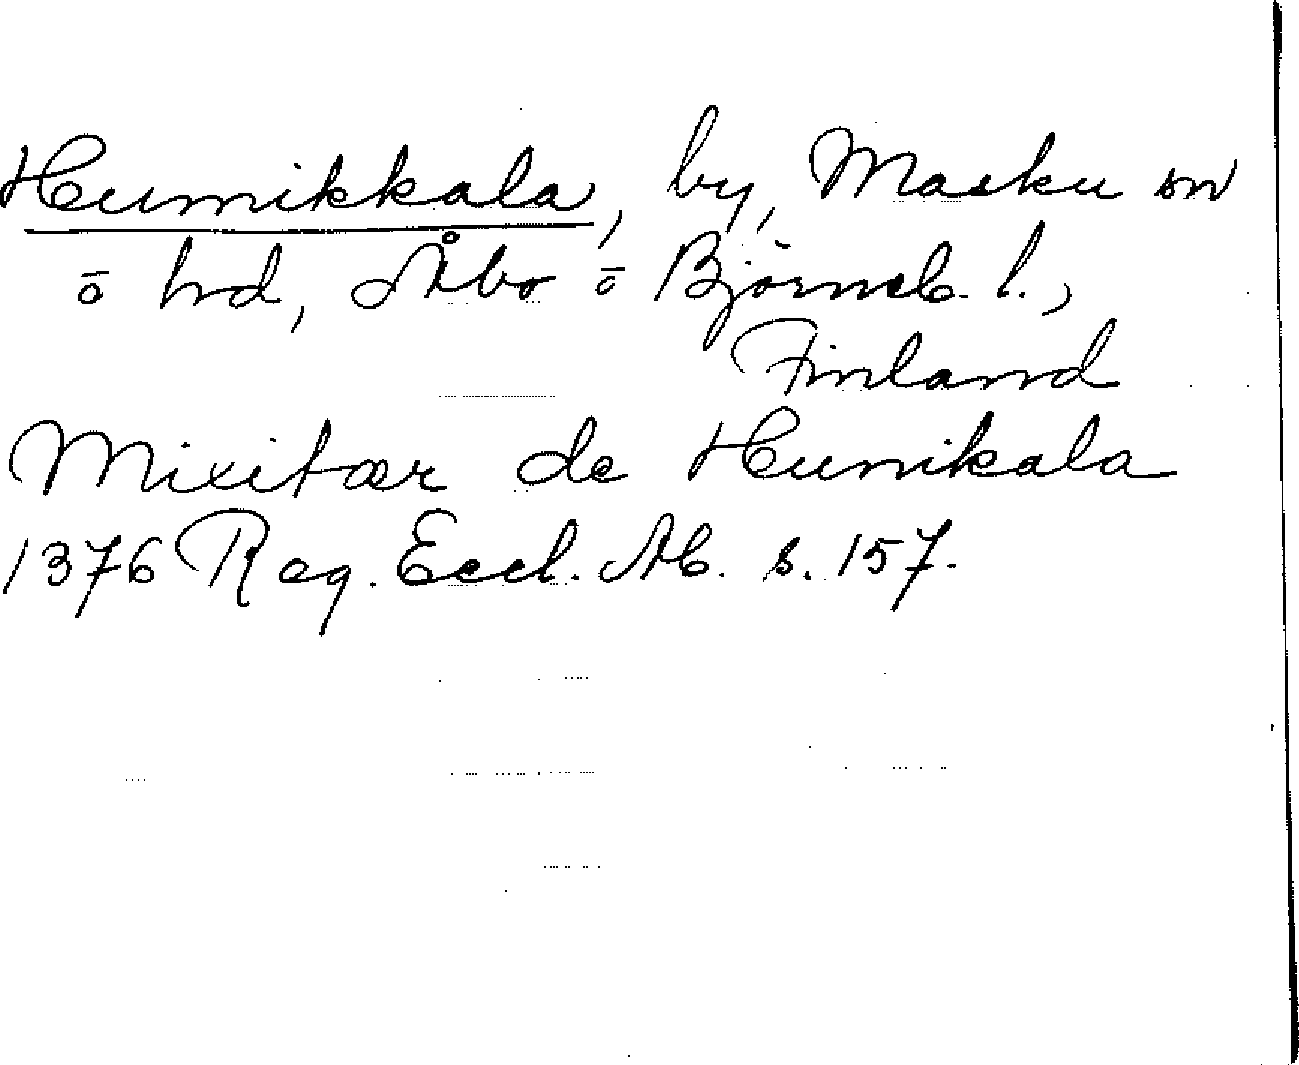 Humikkala, by, Masku sn
ō hd, Åbo ō Björneb. l.,
Finland
Mixitær de Hunikala
1376 Reg. Eccl. Ab. s. 157.